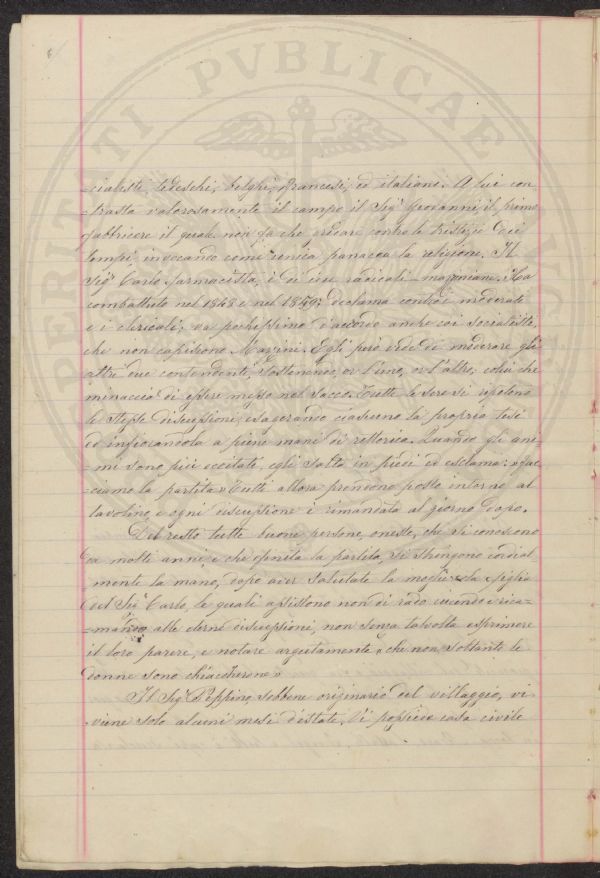 6/
PVBLICAE
-cialisti, tedeschi, belghi, francesi, ed italiani. A lui con
trasta valorosamente il campo il Sigr Giovanni, il primo
fabbricere il quale non fa che gridare contro la tristizia dei
tempi, invocando come unica panacea la religione. Il
Sigr Carlo farmacista, è di idee radicali - mazziniane. Ha
combattuto nel 1848 e nel 1859; declama contro i moderati
e i clericali; va pochissimo d'accordo anche coi socialisti,
che non capiscono Mazzini. Egli però vede di moderare gli
altri due contendenti, sostenendo, or l'uno, or l'altro, colui che
minaccia di essere messo nel sacco. Tutte le sere si ripetono
le stesse discussioni, esagerando ciascuno la propria tesi
ed infiorandola a piene mani di rettorica. Quando gli ani
-mi sono più eccitati, egli salta in piedi ed esclama: "fac
-ciamo la partita" Tutti allora prendono posto intorno al
tavolino e ogni discussione è rimandata al giorno dopo.
Del resto tutte buone persone, oneste, che si conoscono
da molti anni, e che finita la partita, si stringono cordial
mente la mano, dopo aver salutate la moglie e la figlia
del Sigr Carlo, le quali assistono non di rado cucendo e rica-
-mando alle eterne discussioni, non senza talvolta esprimere
il loro parere, e notare argutamente "che non soltanto le
donne sono chiaccherone"
Il Sigr Peppino, sebbene originario del villaggio, vi
viene solo alcuni mesi d'estate. Vi possiede casa civile